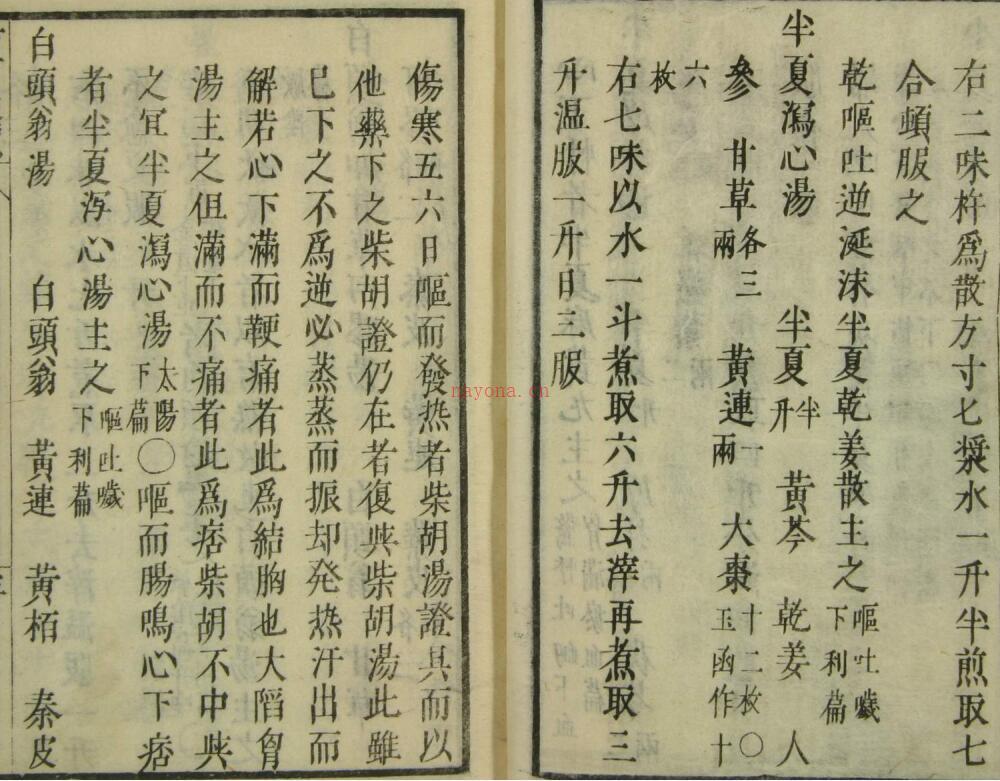 右二味杵爲散方寸匕漿水一升半煎取七
合頓服之
乾嘔吐逆涎沫半夏乾姜散主之嘔吐噦下利篇
半夏瀉心湯　半夏半升　黃芩　乾姜　人
參　甘草各三兩　黃連一兩　大棗十二枚〇玉函作十
六枚
右七味以水一斗煮取六升去滓再煮取三
升温服一升日三服
傷寒五六日嘔而發热者柴胡湯證具而以
他藥下之柴胡證仍在者復與柴胡湯此雖
已下之不爲逆必蒸蒸而振却発热汗出而
解若心下滿而鞕痛者此爲結胸也大陷胷
湯主之但滿而不痛者此爲痞柴胡不中與
之冝半夏瀉心湯太陽下篇〇嘔而腸鳴心下痞
者半夏泻心湯主之嘔吐噦下利篇
白頭翁湯　白頭翁　黃連　黃栢　秦皮
nayona.cn